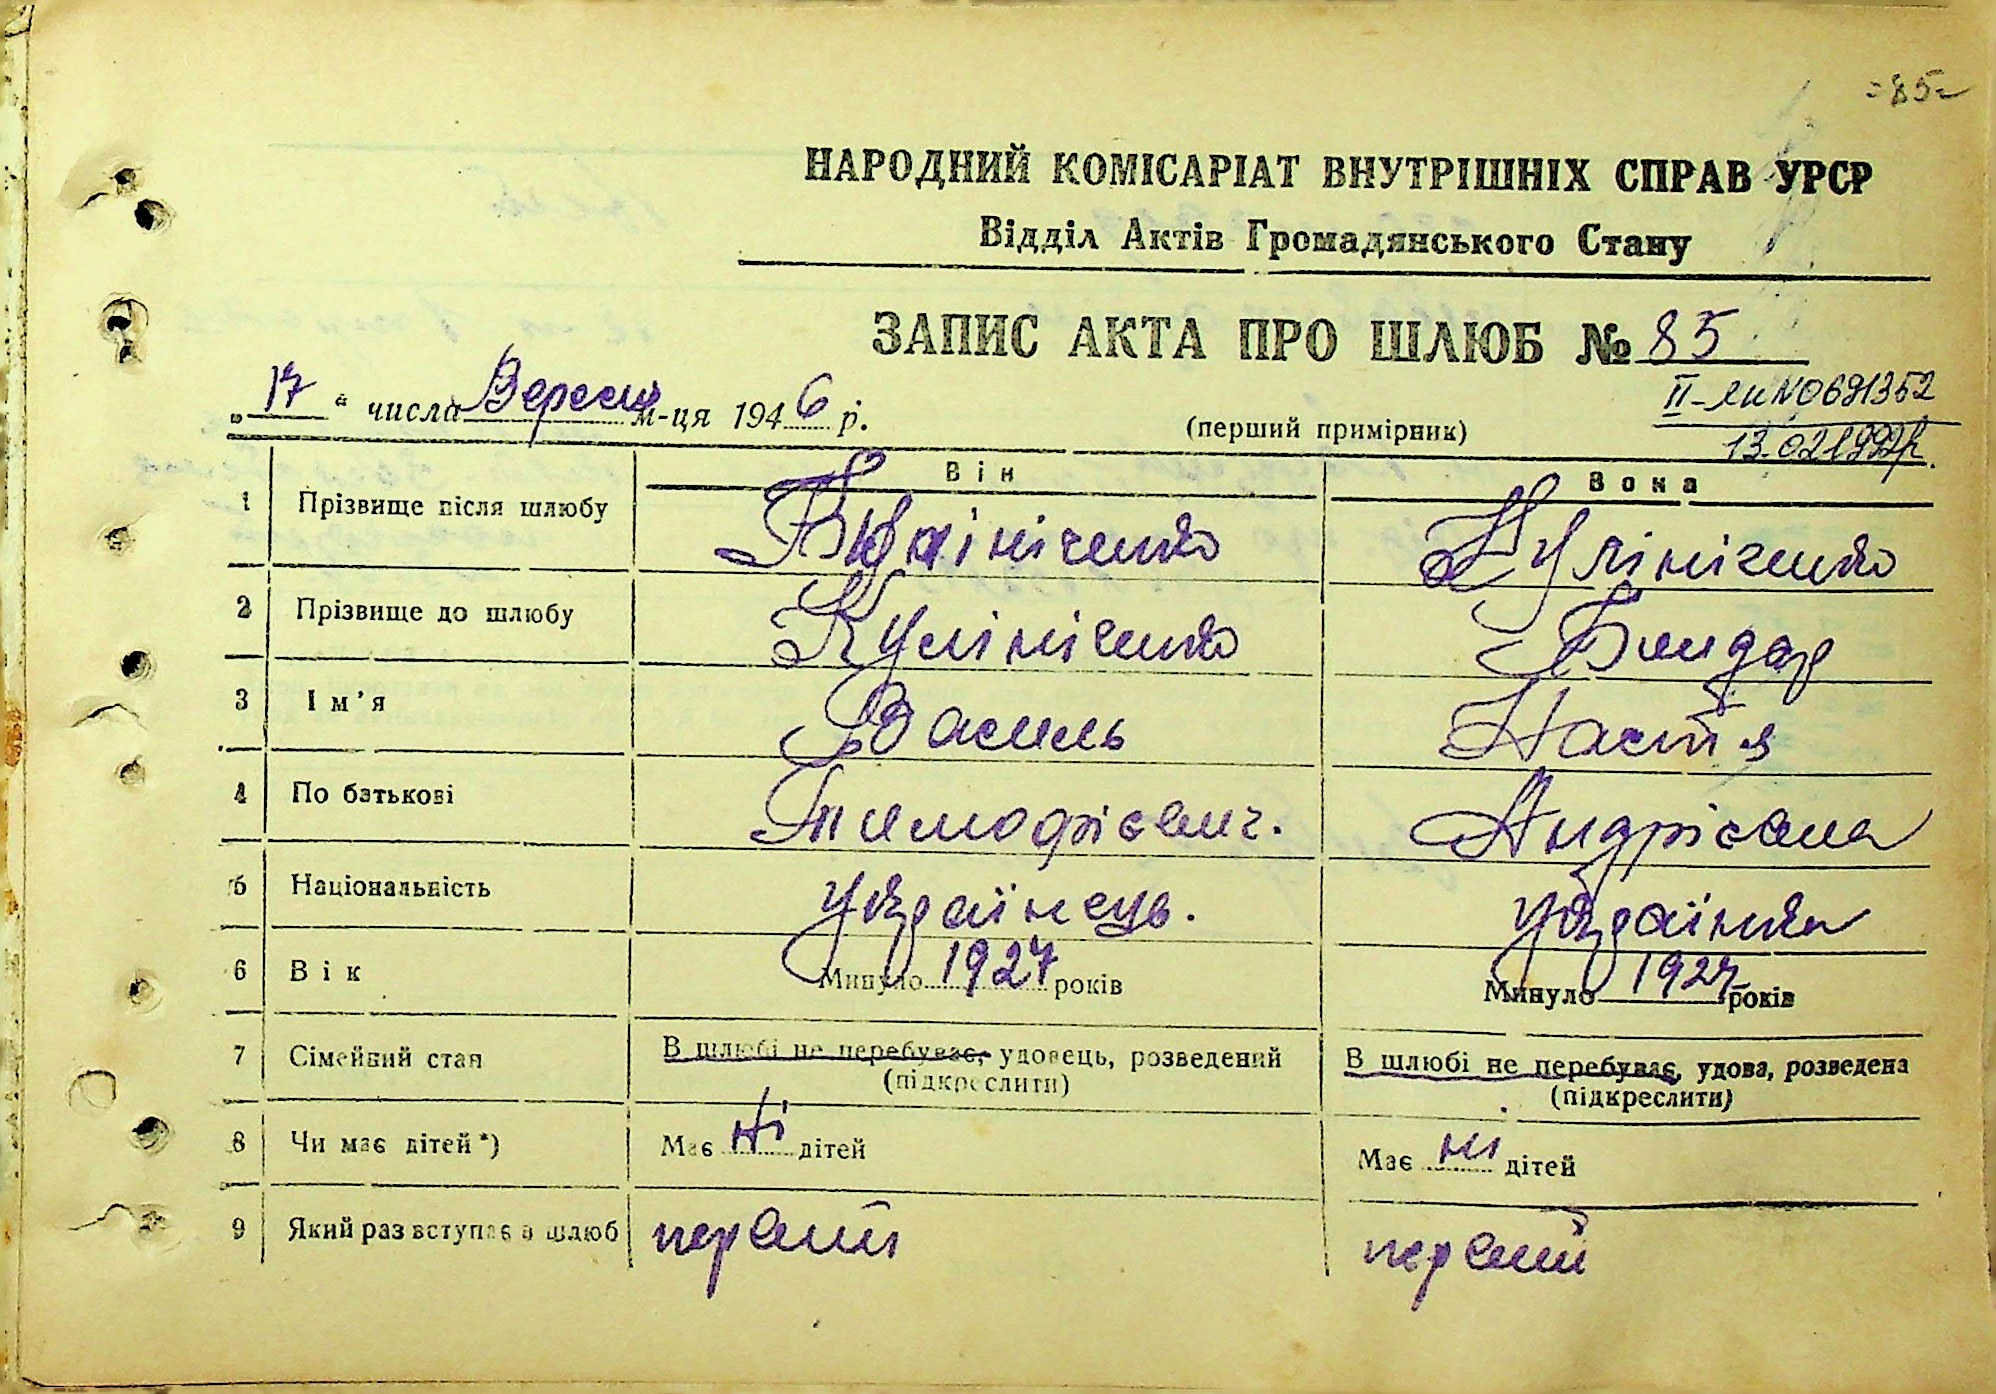 =85=
НАРОДНИЙ КОМІСАРІАТ ВНУТРІШНІХ СПРАВ УРСР
Відділ Актів Громадянського Стану
ЗАПИС АКТА ПРО ШЛЮБ № 85
„17" числа Вересня м-ця 1946 р.
(перший примірник)
II-ЯИ № 0691352
13.02.1992р.
Він Вона
1 Прізвище після шлюбу Кулініченко Кулініченко
2 Прізвище до шлюбу Кулініченко Бондар
3 Ім'я Василь Настя
4 По батькові Тимофієвич. Андрієвна
5 Національність українець. українка
6 Вік Минуло 1927 років Минуло 1927 років
7 Сімейний стан В шлюбі не перебуває, удовець, розведений (підкреслити) В шлюбі не перебуває, удова, розведена (підкреслити)
8 Чи має дітей*) Має ні дітей Має ні дітей
9 Який раз вступає в шлюб первий первий